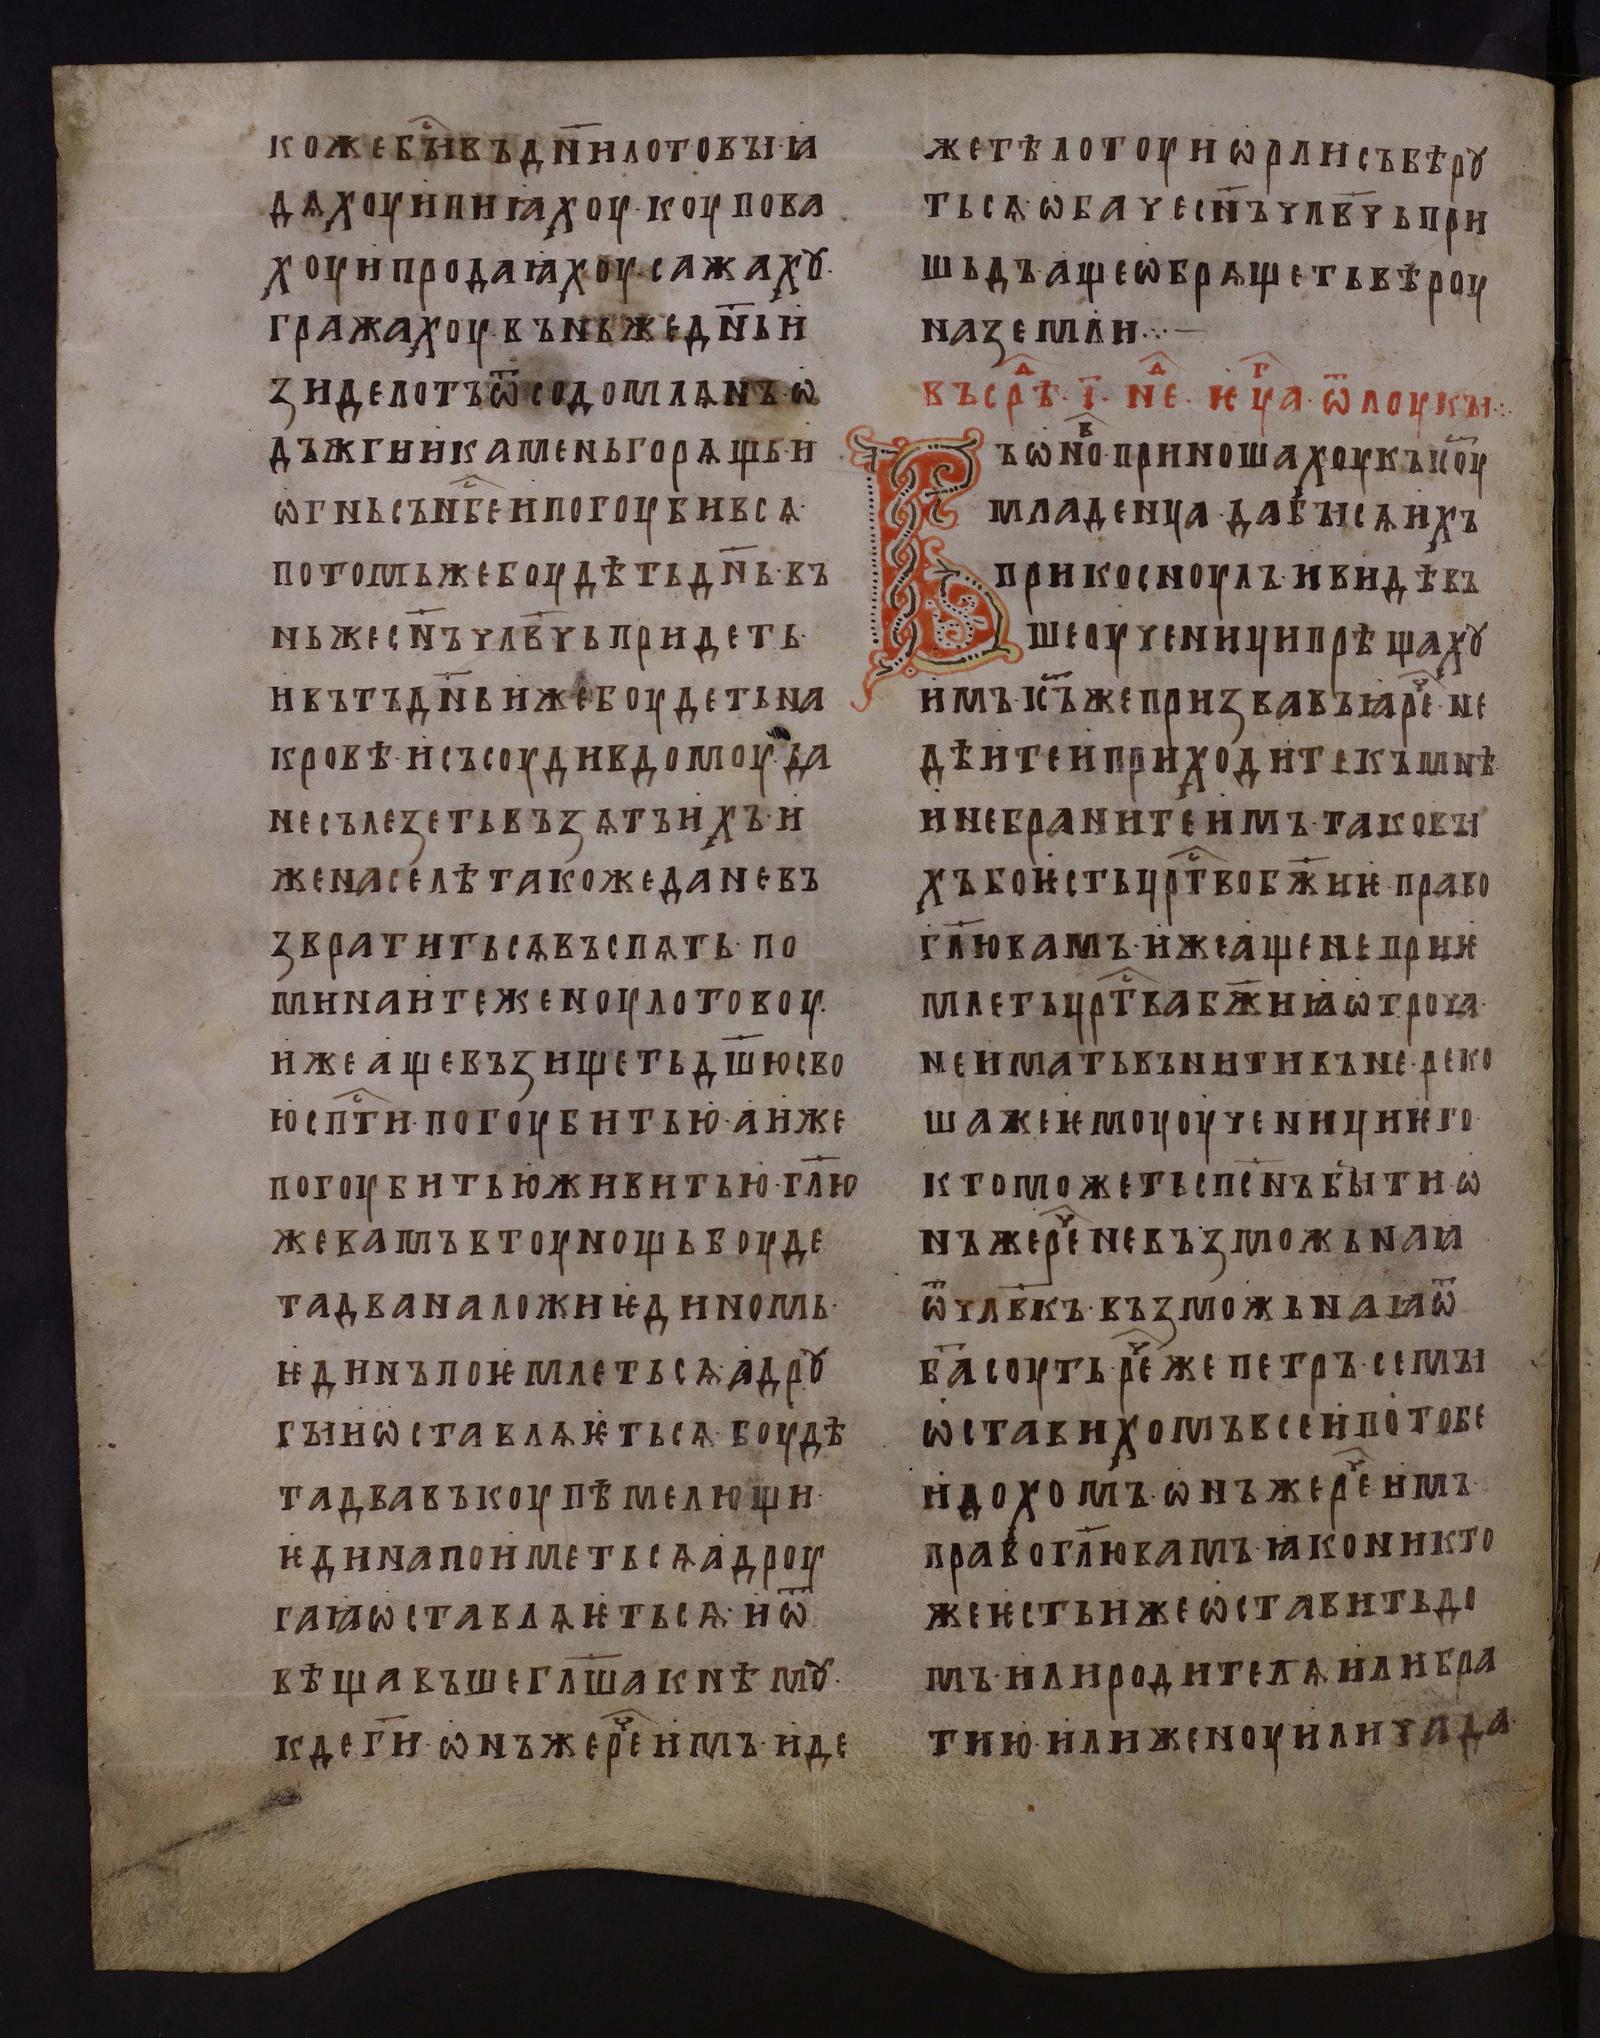 коже бы҇ въ дн҃и лотовы ꙗ
дѧхоу и пиꙗхоу· коупова
хоу и продаꙗхоу· сажахꙋ·
гражахоу· въ нь же дн҃ь и
зиде лотъ ѿ содомлѧнъ ѡ
дъжги и камень горѧщь и
ѡгнь съ нб҃се и погоуби всѧ·
по томь же боудѣть дн҃ь· въ
нь же сн҃ъ члв҃чь придеть·
и въ тъ дн҃ь иже боудеть на
кровѣ· и съсоуди в домоу· да
не сълезеть възѧтъ ихъ· и
же на селѣ такоже да не въ
звратитьсѧ въспѧть· по
минаите женоу лотовоу·
иже аще възищеть дш҃ю сво
ю сп҃сти· погоубить ю· а иже
погоубить ю живить ю· гл҃ю
же вамъ в тоу нощь боуде
та два на ложи ѥдиномь·
ѥдинъ поѥмлетьсѧ· а дрꙋ
гыи ѡставлѧѥтьсѧ· боудѣ
та два въкоупѣ мелющи·
ѥдина поиметьсѧ а дроу
гаꙗ ѡставлѧѥтьсѧ· и ѿ
вѣщавъше гл҃ша к нѣмꙋ·
кде г҃и· ѡнъ же реч҇ имъ· иде
же тѣло тоу и ѡрли съберꙋ
тьсѧ· ѡбаче сн҃ъ члв҃чь при
шьдъ· аще ѡбрѧщеть вѣроу
на земли·:·—
въ срⷣѣ· і҃· нⷣе· ѥⷢуⷢа· ѿ лоукы·:·
Въ ѡнⷪ҇· приношахоу къ іс҃оу
младенца· да бы сѧ ихъ
прикосноулъ· и видѣвъ
ше оученици и прѣщахꙋ
имъ· іс҃ъ же призвавъ ꙗ реч҇· не
дѣите и приходите къ мнѣ
и не браните имъ· таковы
хъ бо ѥсть црт҇во бж҃иѥ· право
гл҃ю вамъ· иже аще не приѥ
млеть црт҇ва бж҃иꙗ ѡтроча·
не имать вънити въ не· реко
ша же ѥмоу оученици ѥго·
кто можеть спс҃нъ быти ѡ
нъ же реч҇ невъзможьнаꙗ
ѿ члв҃къ· възможьна ꙗ ѿ
б҃а соуть· реч҇ же петръ· се мы
ѡставихомъ все и по тобе
идохомъ· ѡнъ же реч҇ имъ·
право гл҃ю вамъ· ꙗко никто
же ѥсть иже ѡставить до
мъ· или родителѧ или бра
тию· или женоу или чада·